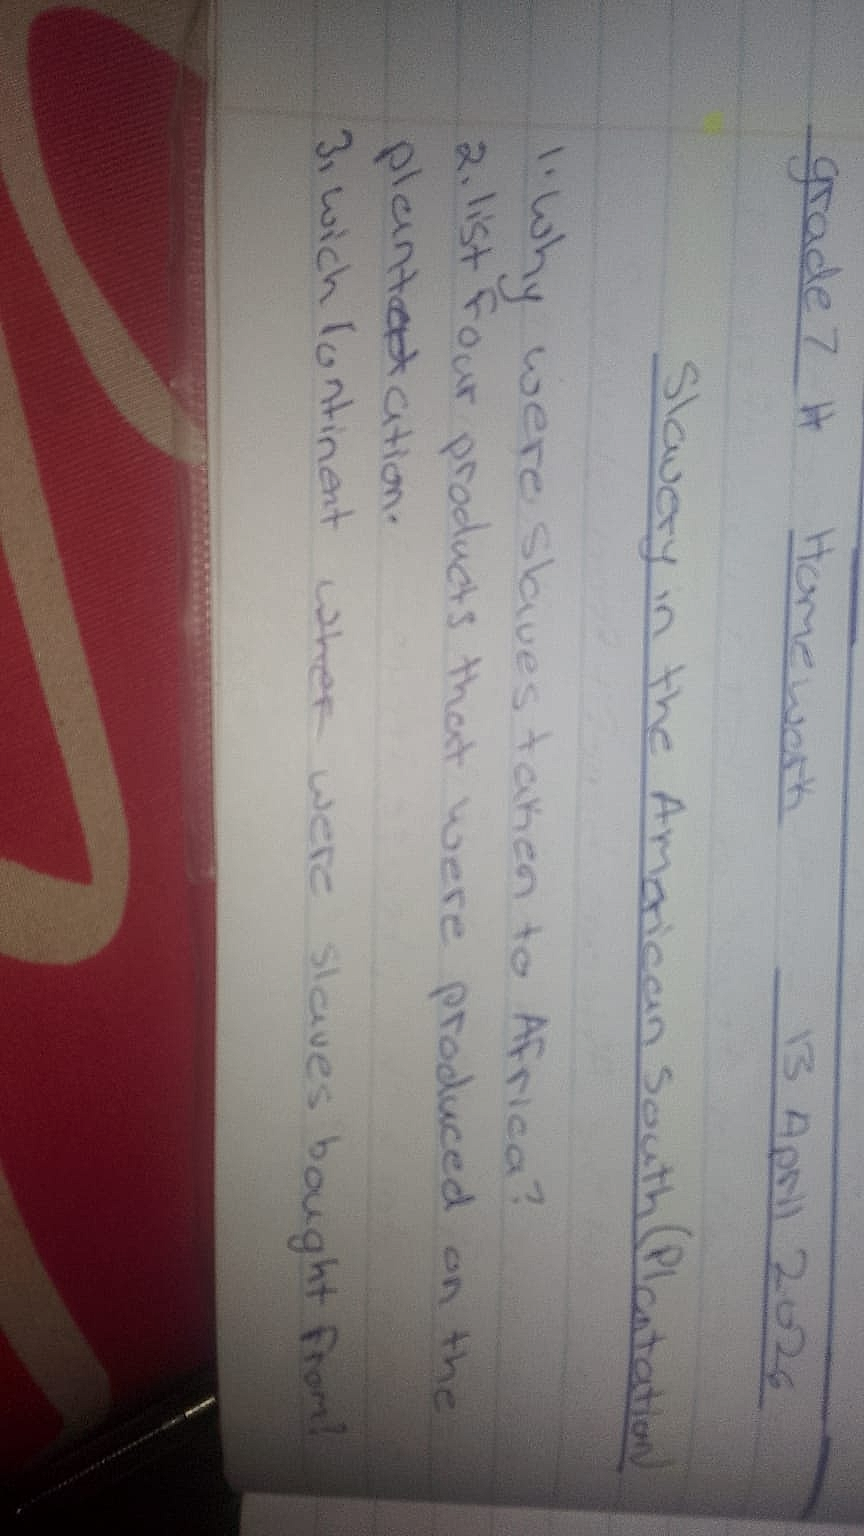 grade 7 H Homework 13 April 2026
Slavery in the American South (Plantation)
1. Why were slaves taken to Africa?
2. list four products that were produced on the
plantation.
3. wich continent were slaves bought from?